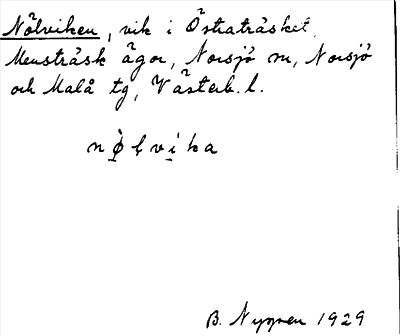 Nölviken, vik i Östraträsket.
Mensträsk ägor, Norsjö sn, Norsjö
och Malå tg, Västerb. l.
n ø̀ l v i k a
B. Nygren 1929